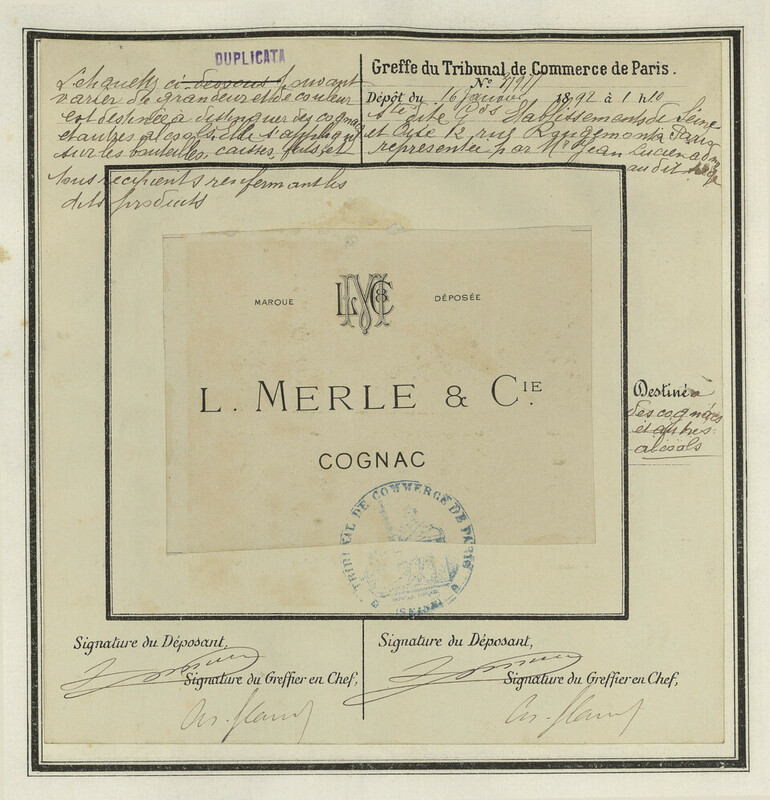 DUPLICATA
L'étiquette ci-dessous pouvant
varier de grandeur et de couleur
est destinée à distinguer des cognacs
et autres alcools elle s'applique
sur les bouteilles, caisses, fûts et
tous récipients renfermant les
dits produits
Greffe du Tribunal de Commerce de Paris.
No
Dépôt du 16 Janvier 1892 à 1 h 10
Sté dite Gds Etablissements de Seine
et Cie 12, rue Rougemont à Paris
représentée par Mr Jean Lucien
au dit
MARQUE
LM&C
DÉPOSÉE
L. MERLE & CIE.
COGNAC
TRIBUNAL DE COMMERCE DE PARIS
(SEINE)
Destinée
des cognacs
et autres
alcools
Signature du Déposant,
Signature du Greffier en Chef,
Signature du Déposant,
Signature du Greffier en Chef,